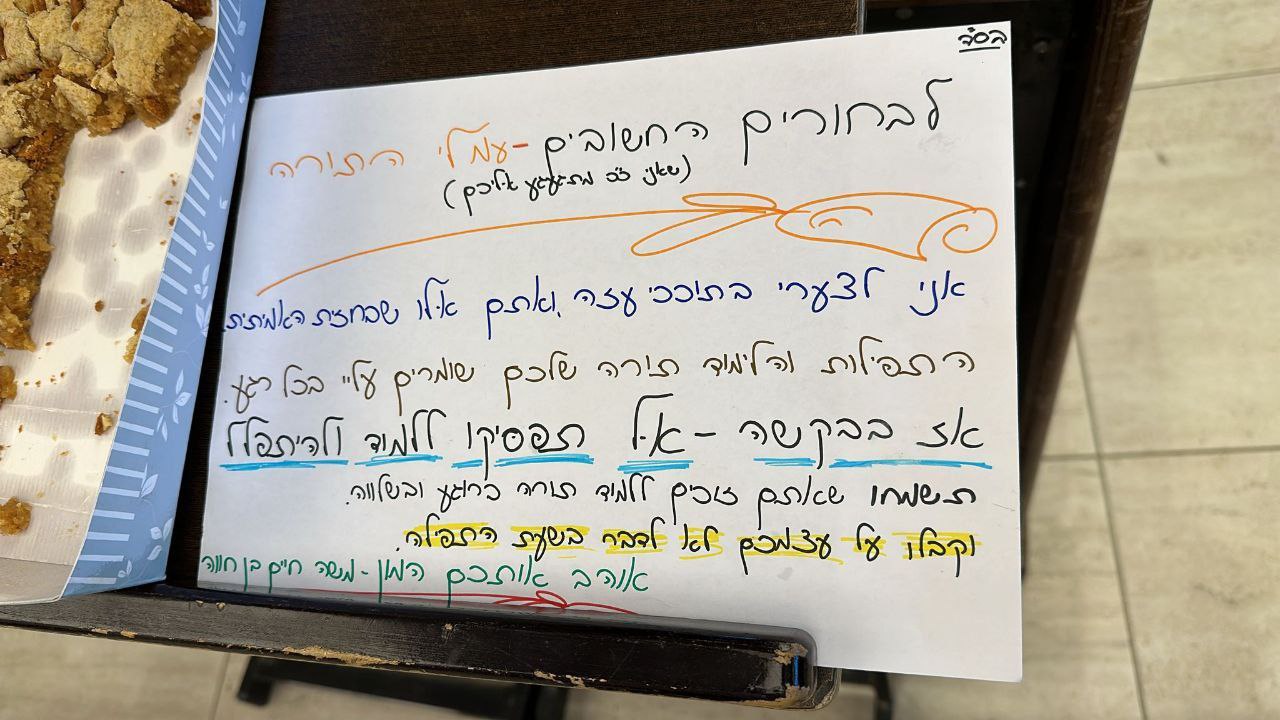 בס"ד
לבחורים החשובים - עמלי התורה
(שאני כ"כ מתגעגע אליכם)
אני לצערי בתוככי עזה, ואתם אלו שבחזית האמיתית.
התפילות והלימוד תורה שלכם שומרים עליי בכל רגע.
אז בבקשה - אל תפסיקו ללמוד ולהיתפלל
תשמחו שאתם זוכים ללמוד תורה ברוגע ובשלווה.
וקבלו על עצמכם לא לדבר בשעת התפילה.
אוהב אותכם המון - משה חיים בן חווה